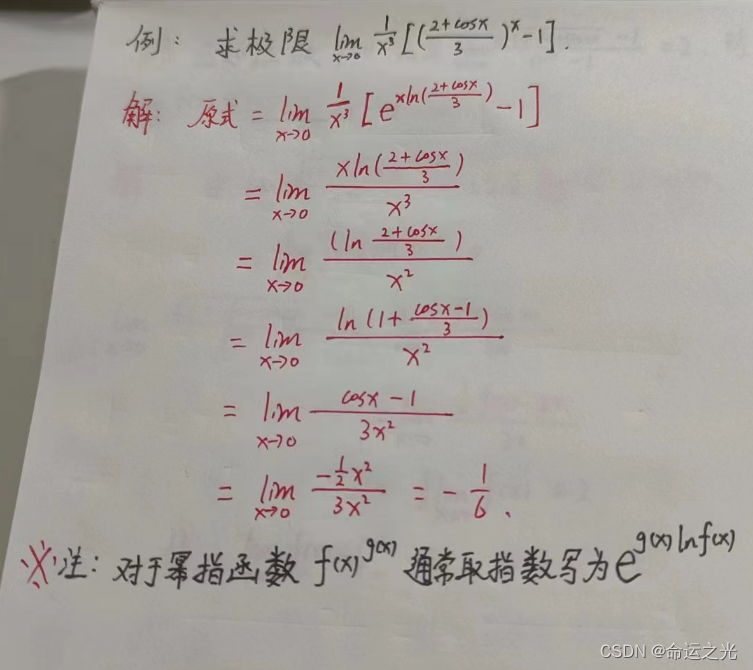 例: 求极限 lim x→0 1/x³ [((2+cosx)/3)^x -1].
解: 原式 = lim x→0 1/x³ [e^(xln((2+cosx)/3)) -1]
= lim x→0 xln((2+cosx)/3) / x³
= lim x→0 (ln (2+cosx)/3) / x²
= lim x→0 ln(1+(cosx-1)/3) / x²
= lim x→0 (cosx -1) / 3x²
= lim x→0 (-½x²) / 3x² = -1/6.
※注: 对于幂指函数 f(x)^g(x) 通常取指数写为 e^(g(x)lnf(x))
CSDN @命运之光